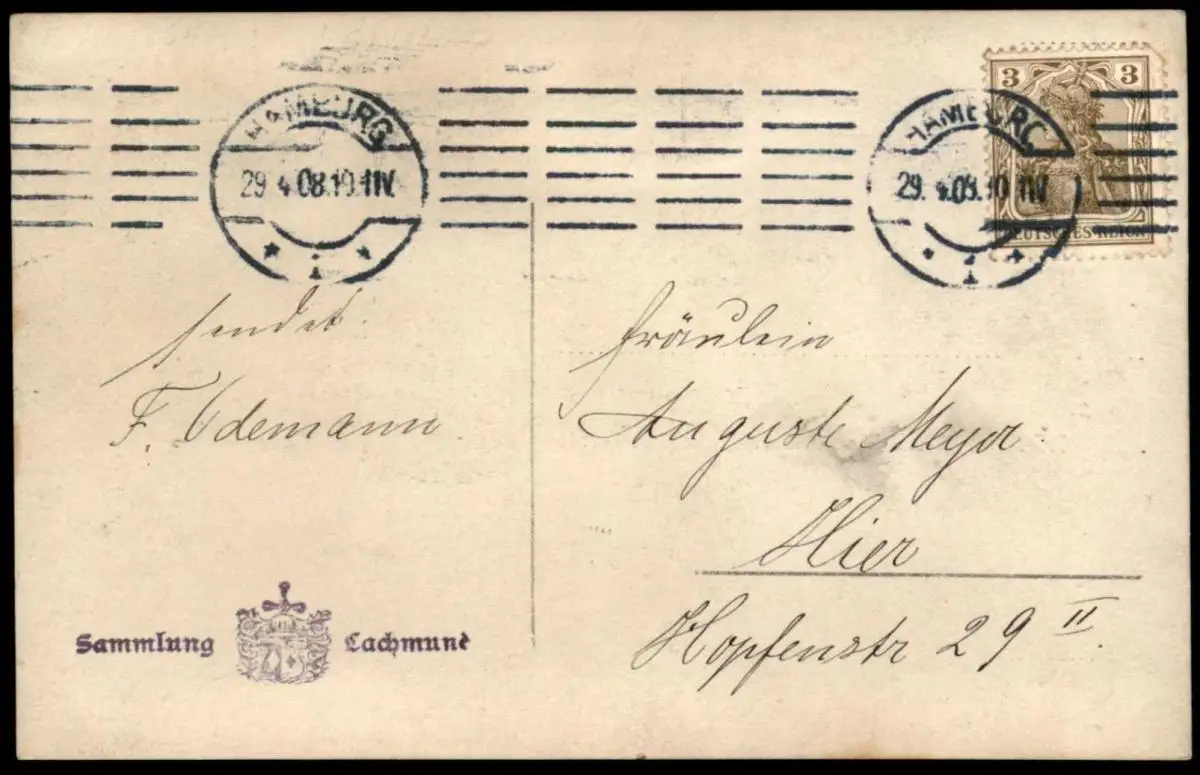 HAMBURG
29.4.08.10-11V.
* 1 *
HAMBURG
29.4.08.10-11V.
* 1 *
3 3
DEUTSCHES REICH
sendet
F. Odemann
Fräulein
Auguste Meyer
Hier
Hopfenstr 29 II.
Sammlung Lachmund